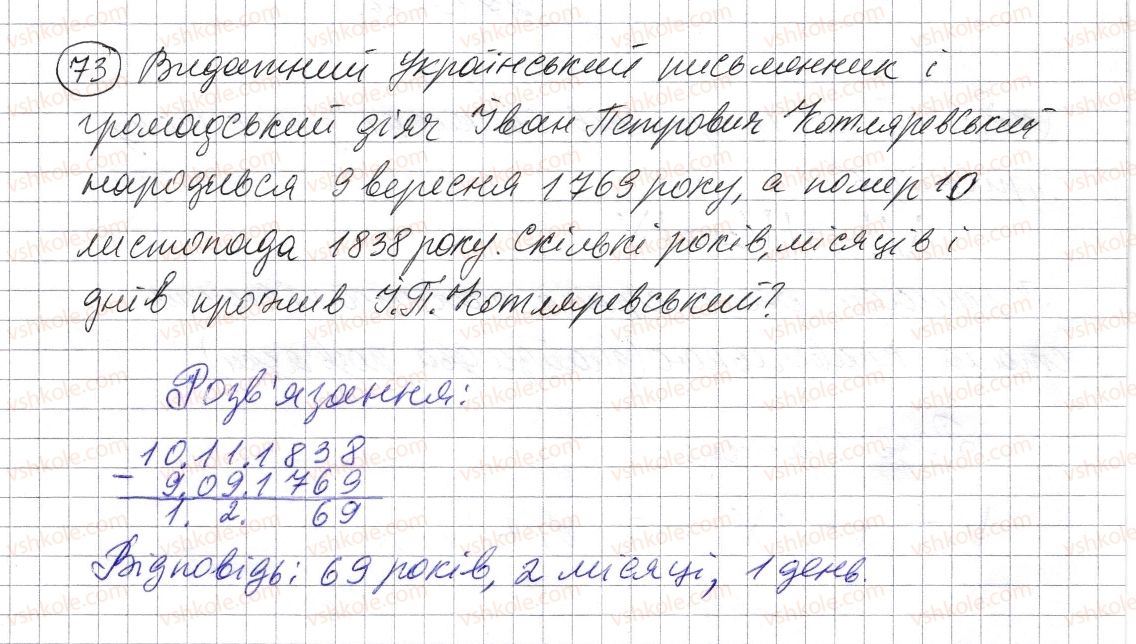 73 Видатний український письменник і
громадський діяч Іван Петрович Котляревський
народився 9 вересня 1769 року, а помер 10
листопада 1838 року. Скількі років, місяців і
днів прожив І.П. Котляревський?
Розв'язання:
10.11.1838
- 9.09.1769
1. 2. 69
Відповідь: 69 років, 2 місяці, 1 день.